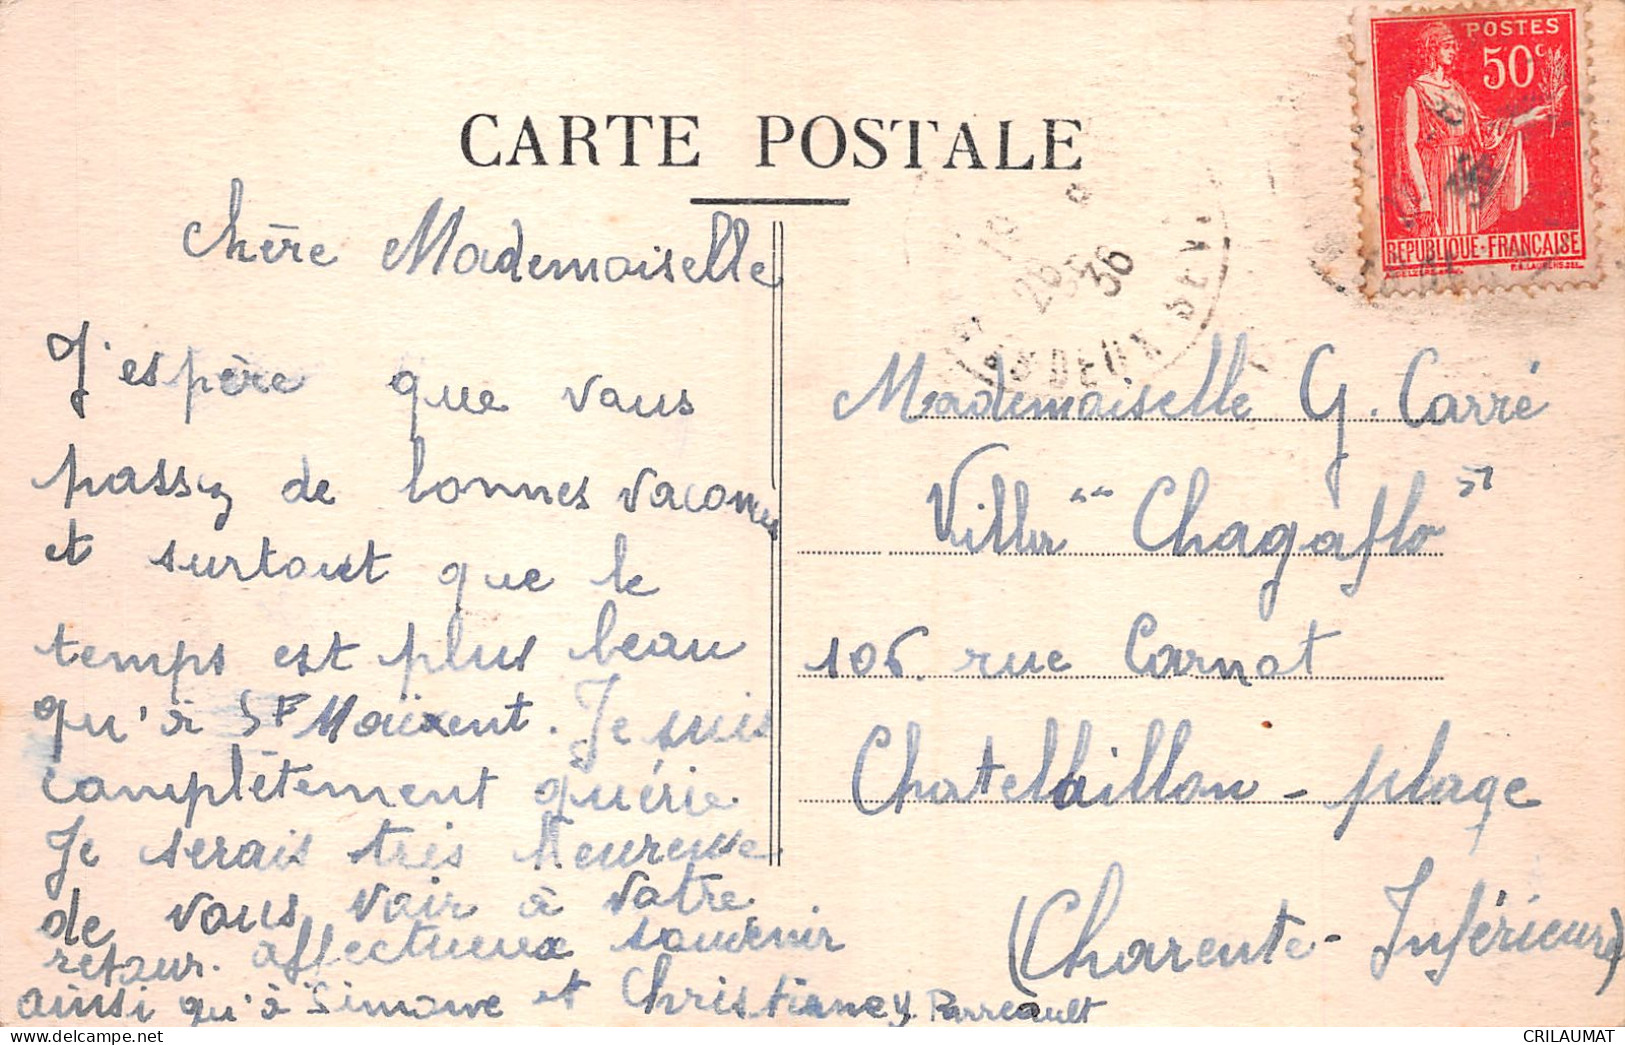 CARTE POSTALE
POSTES
50c
REPUBLIQUE-FRANÇAISE
26
36
DEUX SEV
Chère Mademoiselle
J'espère que vous
passez de bonnes vacances
et surtout que le
temps est plus beau
qu'à St Maixent. Je suis
complètement guérie
Je serais très heureuse
de vous voir à votre
retour. affectueux souvenir
ainsi qu'à Simone et Christiane
Y. Parreault
Mademoiselle G. Carré
Villa " Chagaflo "
106. rue Carnot
Chatellaillon - plage
(Charente - Inférieure)
CRILAUMAT